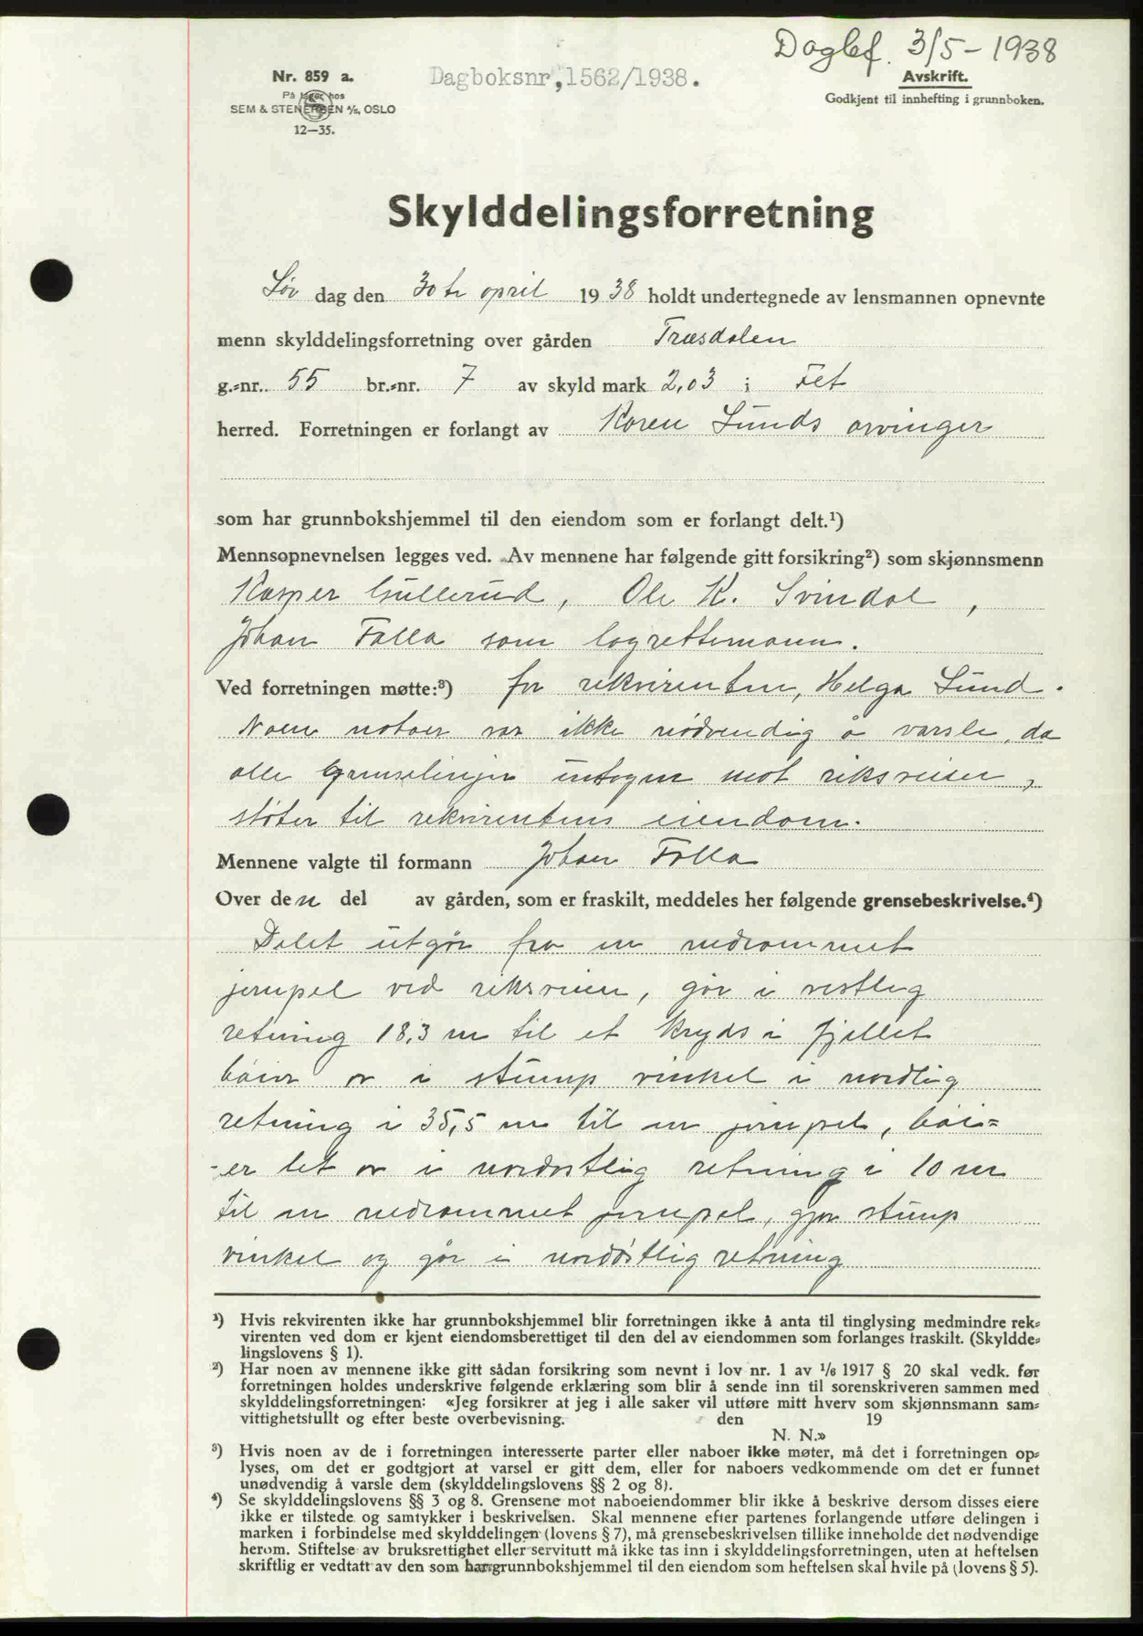 Dagbf. 3/5-1938
Nr. 859 a.
Dagboksnr, 1562/1938.
Avskrift.
På lager hos
Godkjent til innhefting i grunnboken.
SEM & STENERSEN A/S, OSLO
12—35.
Skylddelingsforretning
Lør dag den 30te april 1938 holdt undertegnede av lensmannen opnevnte
menn skylddelingsforretning over gården Træsdalen
g.-nr. 55 br.-nr. 7 av skyld mark 2,03 i Fet
herred. Forretningen er forlangt av Karen Lunds arvinger
som har grunnbokshjemmel til den eiendom som er forlangt delt.¹)
Mennsopnevnelsen legges ved. Av mennene har følgende gitt forsikring²) som skjønnsmenn
Kasper Gullerud, Ole K. Svindal,
Johan Falla som lagrettemann.
Ved forretningen møtte:³) for rekvirenten, Helga Lund.
Noen naboer var ikke nødvendig å varsle, da
alle grenselinjer untagen mot riksveien,
støter til rekvirentens eiendom.
Mennene valgte til formann Johan Falla
Over den del av gården, som er fraskilt, meddeles her følgende grensebeskrivelse.⁴)
Delet utgår fra en nedrammet
jernpel ved riksveien, går i vestlig
retning 18,3 m til et kryds i fjellet
bøier av i stump vinkel i nordlig
retning i 35,5 m til en jernpel, bøi=
-er let av i nordostlig retning i 10 m
til en nedrammet jernpel, gjør stump
vinkel og går i nordøstlig retning
¹) Hvis rekvirenten ikke har grunnbokshjemmel blir forretningen ikke å anta til tinglysing medmindre rek-
virenten ved dom er kjent eiendomsberettiget til den del av eiendommen som forlanges fraskilt. (Skyldde-
lingslovens § 1).
²) Har noen av mennene ikke gitt sådan forsikring som nevnt i lov nr. 1 av 1/6 1917 § 20 skal vedk. før
forretningen holdes underskrive følgende erklæring som blir å sende inn til sorenskriveren sammen med
skylddelingsforretningen: «Jeg forsikrer at jeg i alle saker vil utføre mitt hverv som skjønnsmann sam-
vittighetsfullt og efter beste overbevisning. den 19
N. N.»
³) Hvis noen av de i forretningen interesserte parter eller naboer ikke møter, må det i forretningen op-
lyses, om det er godtgjort at varsel er gitt dem, eller for naboers vedkommende om det er funnet
unødvendig å varsle dem (skylddelingslovens §§ 2 og 8).
⁴) Se skylddelingslovens §§ 3 og 8. Grensene mot naboeiendommer blir ikke å beskrive dersom disses eiere
ikke er tilstede og samtykker i beskrivelsen. Skal mennene efter partenes forlangende utføre delingen i
marken i forbindelse med skylddelingen (lovens § 7), må grensebeskrivelsen tillike inneholde det nødvendige
herom. Stiftelse av bruksrettighet eller servitutt må ikke tas inn i skylddelingsforretningen, uten at heftelsen
skriftlig er vedtatt av den som har grunnbokshjemmel til den eiendom som heftelsen skal hvile på (lovens § 5).